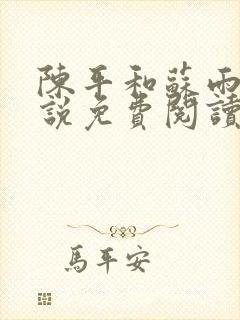 陳平和蘇雨
說免費閱讀
馬平安